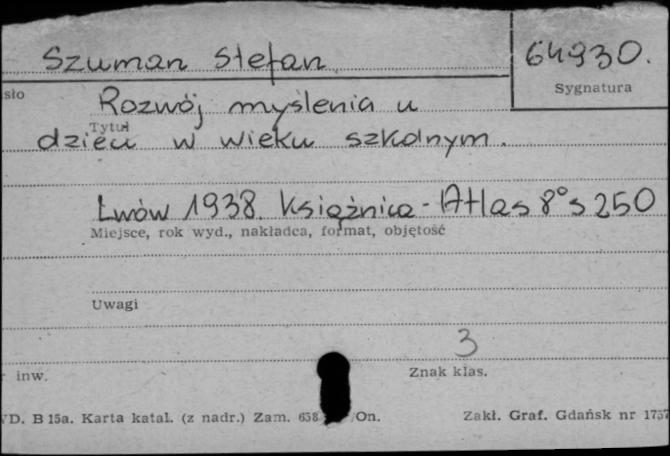 Szuman Stefan
64930.
Sygnatura
sło
Rozwój myślenia u
Tytuł
dzieci w wieku szkolnym.
Lwów 1938. Książnica-Atlas 8° s 250
Miejsce, rok wyd., nakładca, format, objętość
Uwagi
3
r inw.
Znak klas.
VD. B 15a. Karta katal. (z nadr.) Zam. 638 /On.
Zakł. Graf. Gdańsk nr 1757